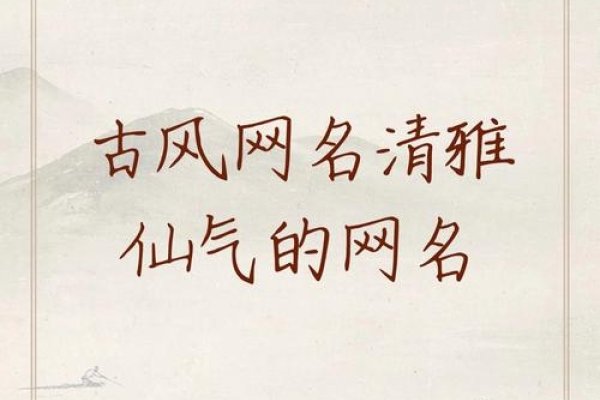 古风网名清雅
仙气的网名